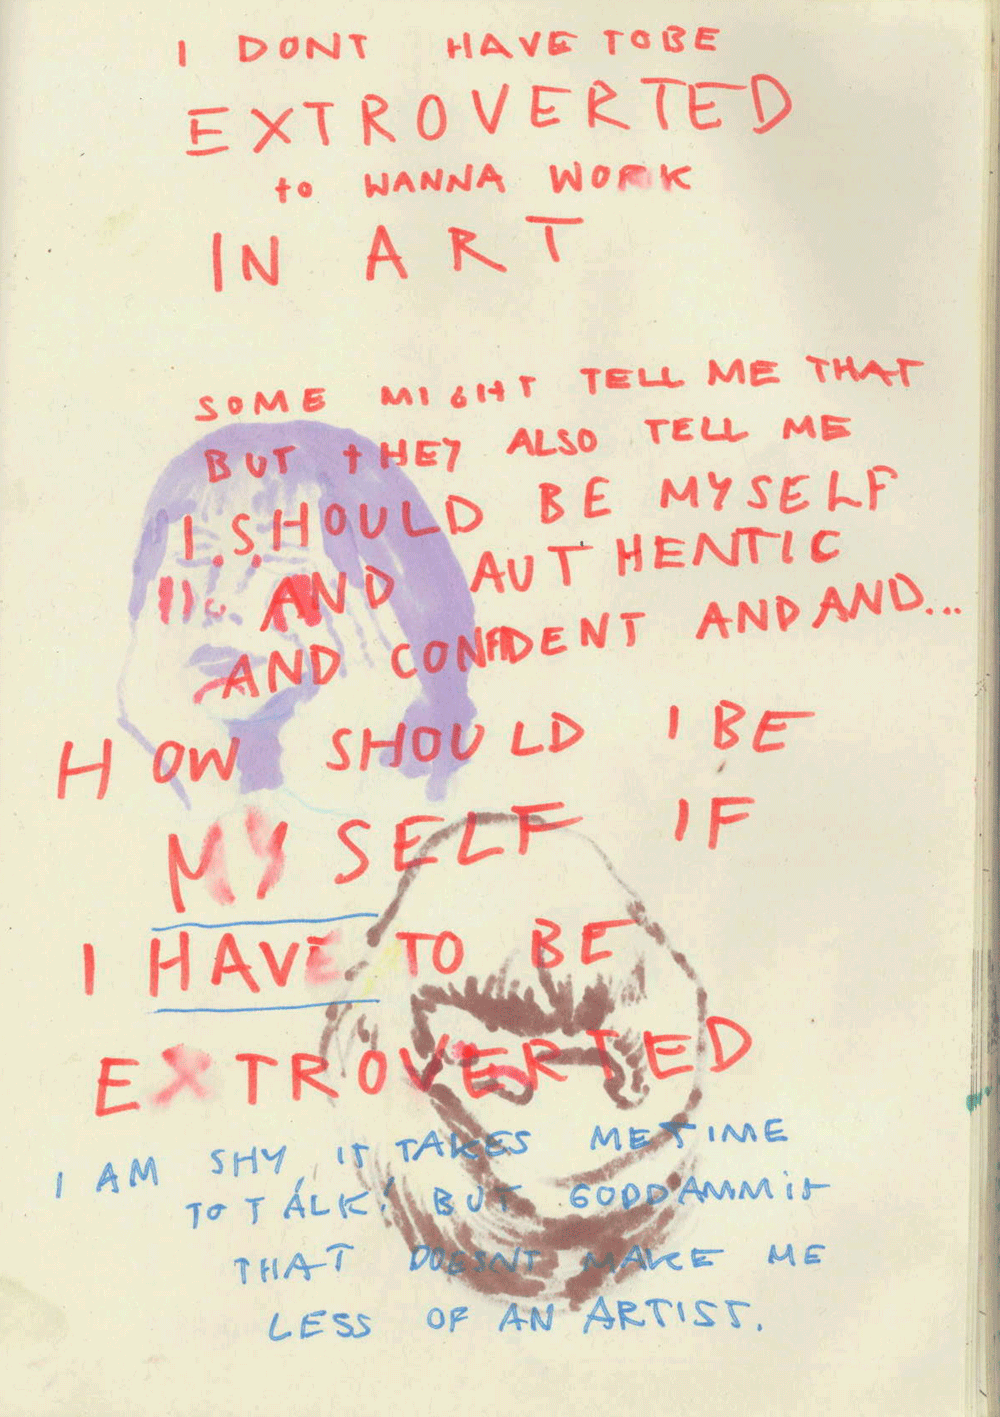 I DONT HAVE TO BE
EXTROVERTED
to WANNA WORK
IN ART
SOME MIGHT TELL ME THAT
BUT tHEY ALSO TELL ME
I SHOULD BE MYSELF
AND AUTHENTIC
AND CONFIDENT AND AND...
HOW SHOULD I BE
MYSELF IF
I HAVE TO BE
EXTROVERTED
I AM SHY, IT TAKES ME TIME
TO TALK! BUT GODDAMMit
THAT DOESNT MAKE ME
LESS OF AN ARTIST.